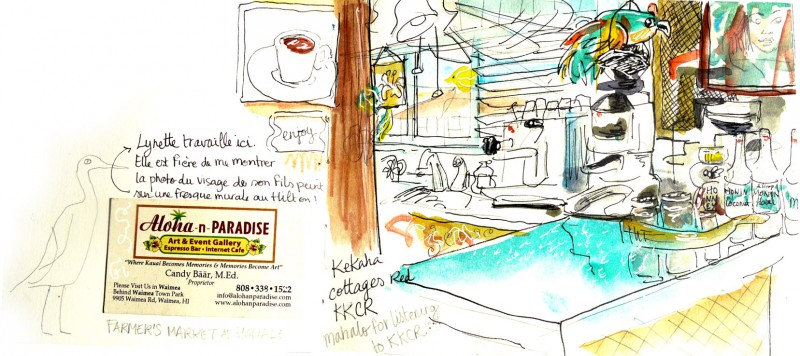 enjoy
Lynette travaille ici.
Elle est fière de me montrer
la photo du visage de son fils peint
sur une fresque murale au Hilton !
Aloha-n-PARADISE
Art & Event Gallery
Espresso Bar • Internet Cafe
"Where Kauai Becomes Memories & Memories Become Art"
Candy Bäär, M.Ed.
Proprietor
Please Visit Us in Waimea
Behind Waimea Town Park
9905 Waimea Rd, Waimea, HI
808•338•1522
info@alohanparadise.com
www.alohanparadise.com
FARMER'S MARKET
Kekaha
cottages Red
KKCR
mahalo for listening
to KKCR
MONIN
Coconut
MONIN